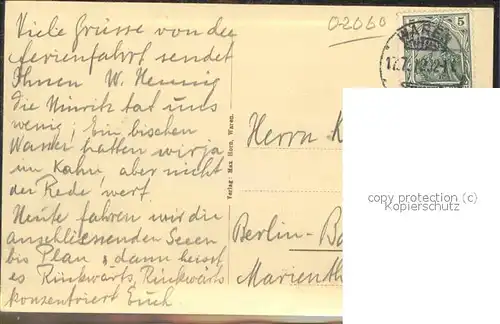 Viele Grüsse von der
Ferienfahrt sendet
Ihnen W. Hennig
die Müritz tat uns
wenig; Ein bischen
Wasser hatten wir ja
im Kahn, aber nicht
der Rede wert.
Heute fahren wir die
anschliessenden Seeen
bis Plau, & dann heisst
es Rückwärts, Rückwärts
konzentriert Euch
02060
5 5
WAREN
Verlag: Max Horn, Waren.
Herrn K
Berlin-Ba
Marienth
copyright protection (c)
Kopierschutz